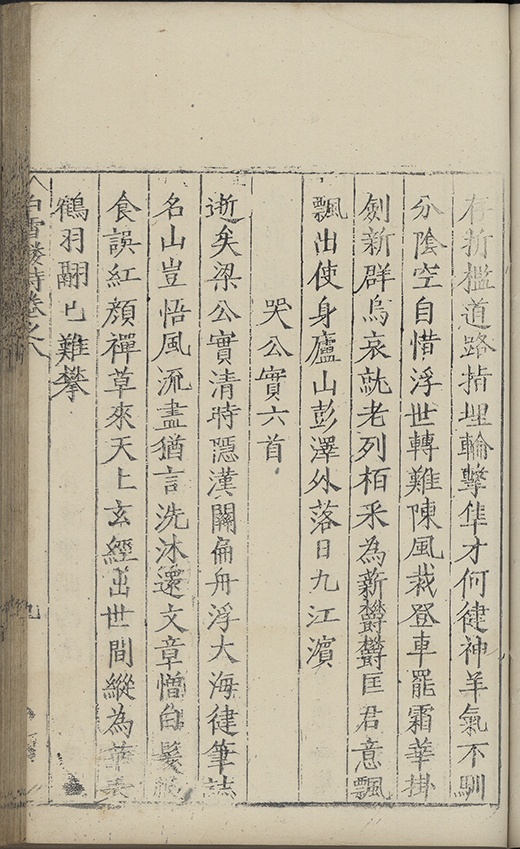 存折檻道路指埋輪擊隼才何徤神羊氣不馴
分陰空自惜浮世轉難陳風裁登車罷霜華掛
劍新群烏哀就老列栢采為薪欝欝匡君意飄
飄出使身廬山彭澤外落日九江濱
哭公實六首
逝矣梁公實清時隱漢關扁舟浮大海徤筆誌
名山豈悟風流盡猶言洗沐還文章憎白髮服
食誤紅顏禪草來天上玄經出世間縱為華表
鶴羽翮已難攀
白雪樓詩卷之八
九